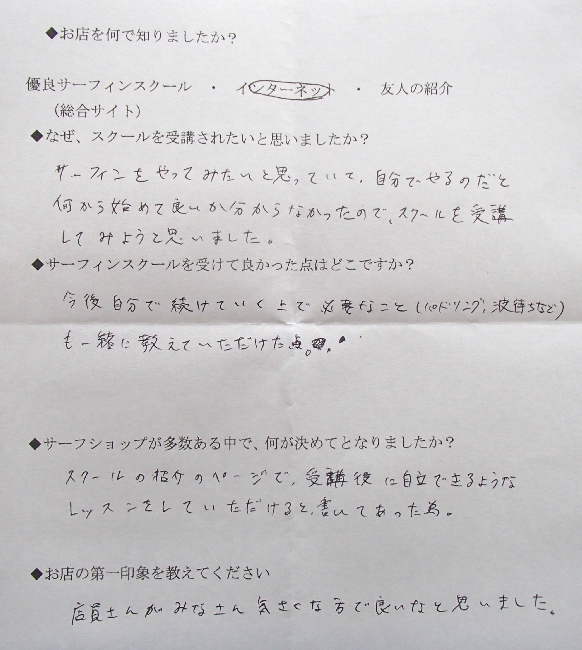 ◆お店を何で知りましたか？
優良サーフィンスクール ・ インターネット ・ 友人の紹介
（総合サイト）
◆なぜ、スクールを受講されたいと思いましたか？
サーフィンをやってみたいと思っていて、自分でやるのだと
何から始めて良いか分からなかったので、スクールを受講
してみようと思いました。
◆サーフィンスクールを受けて良かった点はどこですか？
今後自分で続けていく上で必要なこと（パドリング，波待ちなど）
も一緒に教えていただけた点。
◆サーフショップが多数ある中で、何が決めてとなりましたか？
スクールの紹介のページで、受講後に自立できるような
レッスンをしていただけると、書いてあった為。
◆お店の第一印象を教えてください
店員さんがみなさん気さくな方で良いなと思いました。